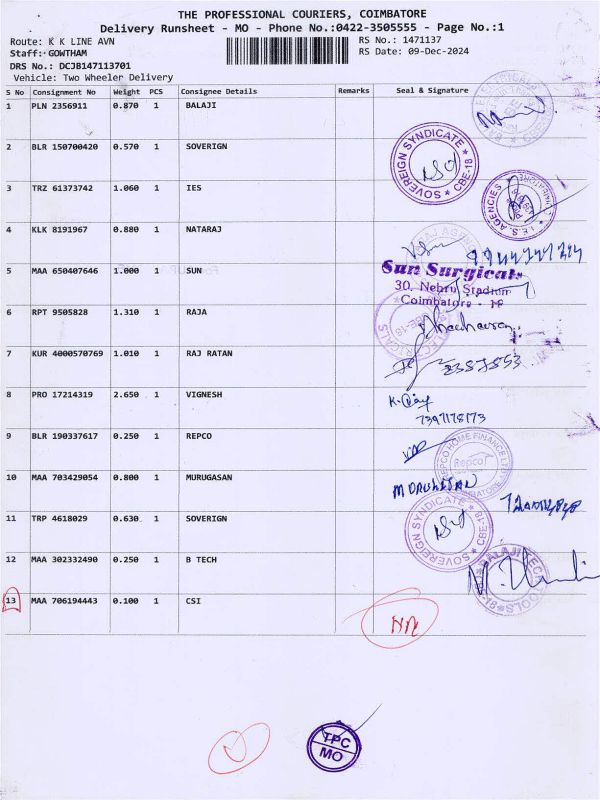 THE PROFESSIONAL COURIERS, COIMBATORE
Delivery Runsheet - MO - Phone No.:0422-3505555 - Page No.:1
Route: K K LINE AVN RS No.: 1471137
Staff: GOWTHAM RS Date: 09-Dec-2024
DRS No.: DCJB147113701
Vehicle: Two Wheeler Delivery
S No Consignment No Weight PCS Consignee Details Remarks Seal & Signature
1 PLN 2356911 0.870 1 BALAJI
2 BLR 150700420 0.570 1 SOVERIGN
SOVEREIGN SYNDICATE CBE-18
3 TRZ 61373742 1.060 1 IES
I.E.S. AGENCIES
4 KLK 8191967 0.880 1 NATARAJ
5 MAA 650407646 1.000 1 SUN
Sun Surgicals
30, Nehru Stadium
Coimbatore - 18
6 RPT 9505828 1.310 1 RAJA
7 KUR 4000570769 1.010 1 RAJ RATAN
8 PRO 17214319 2.650 1 VIGNESH
7397178173
9 BLR 190337617 0.250 1 REPCO
REPCO HOME FINANCE LTD
Repco
10 MAA 703429054 0.800 1 MURUGASAN
11 TRP 4618029 0.630 1 SOVERIGN
SOVEREIGN SYNDICATE CBE-18
12 MAA 302332490 0.250 1 B TECH
13 MAA 706194443 0.100 1 CSI
TPC
MO